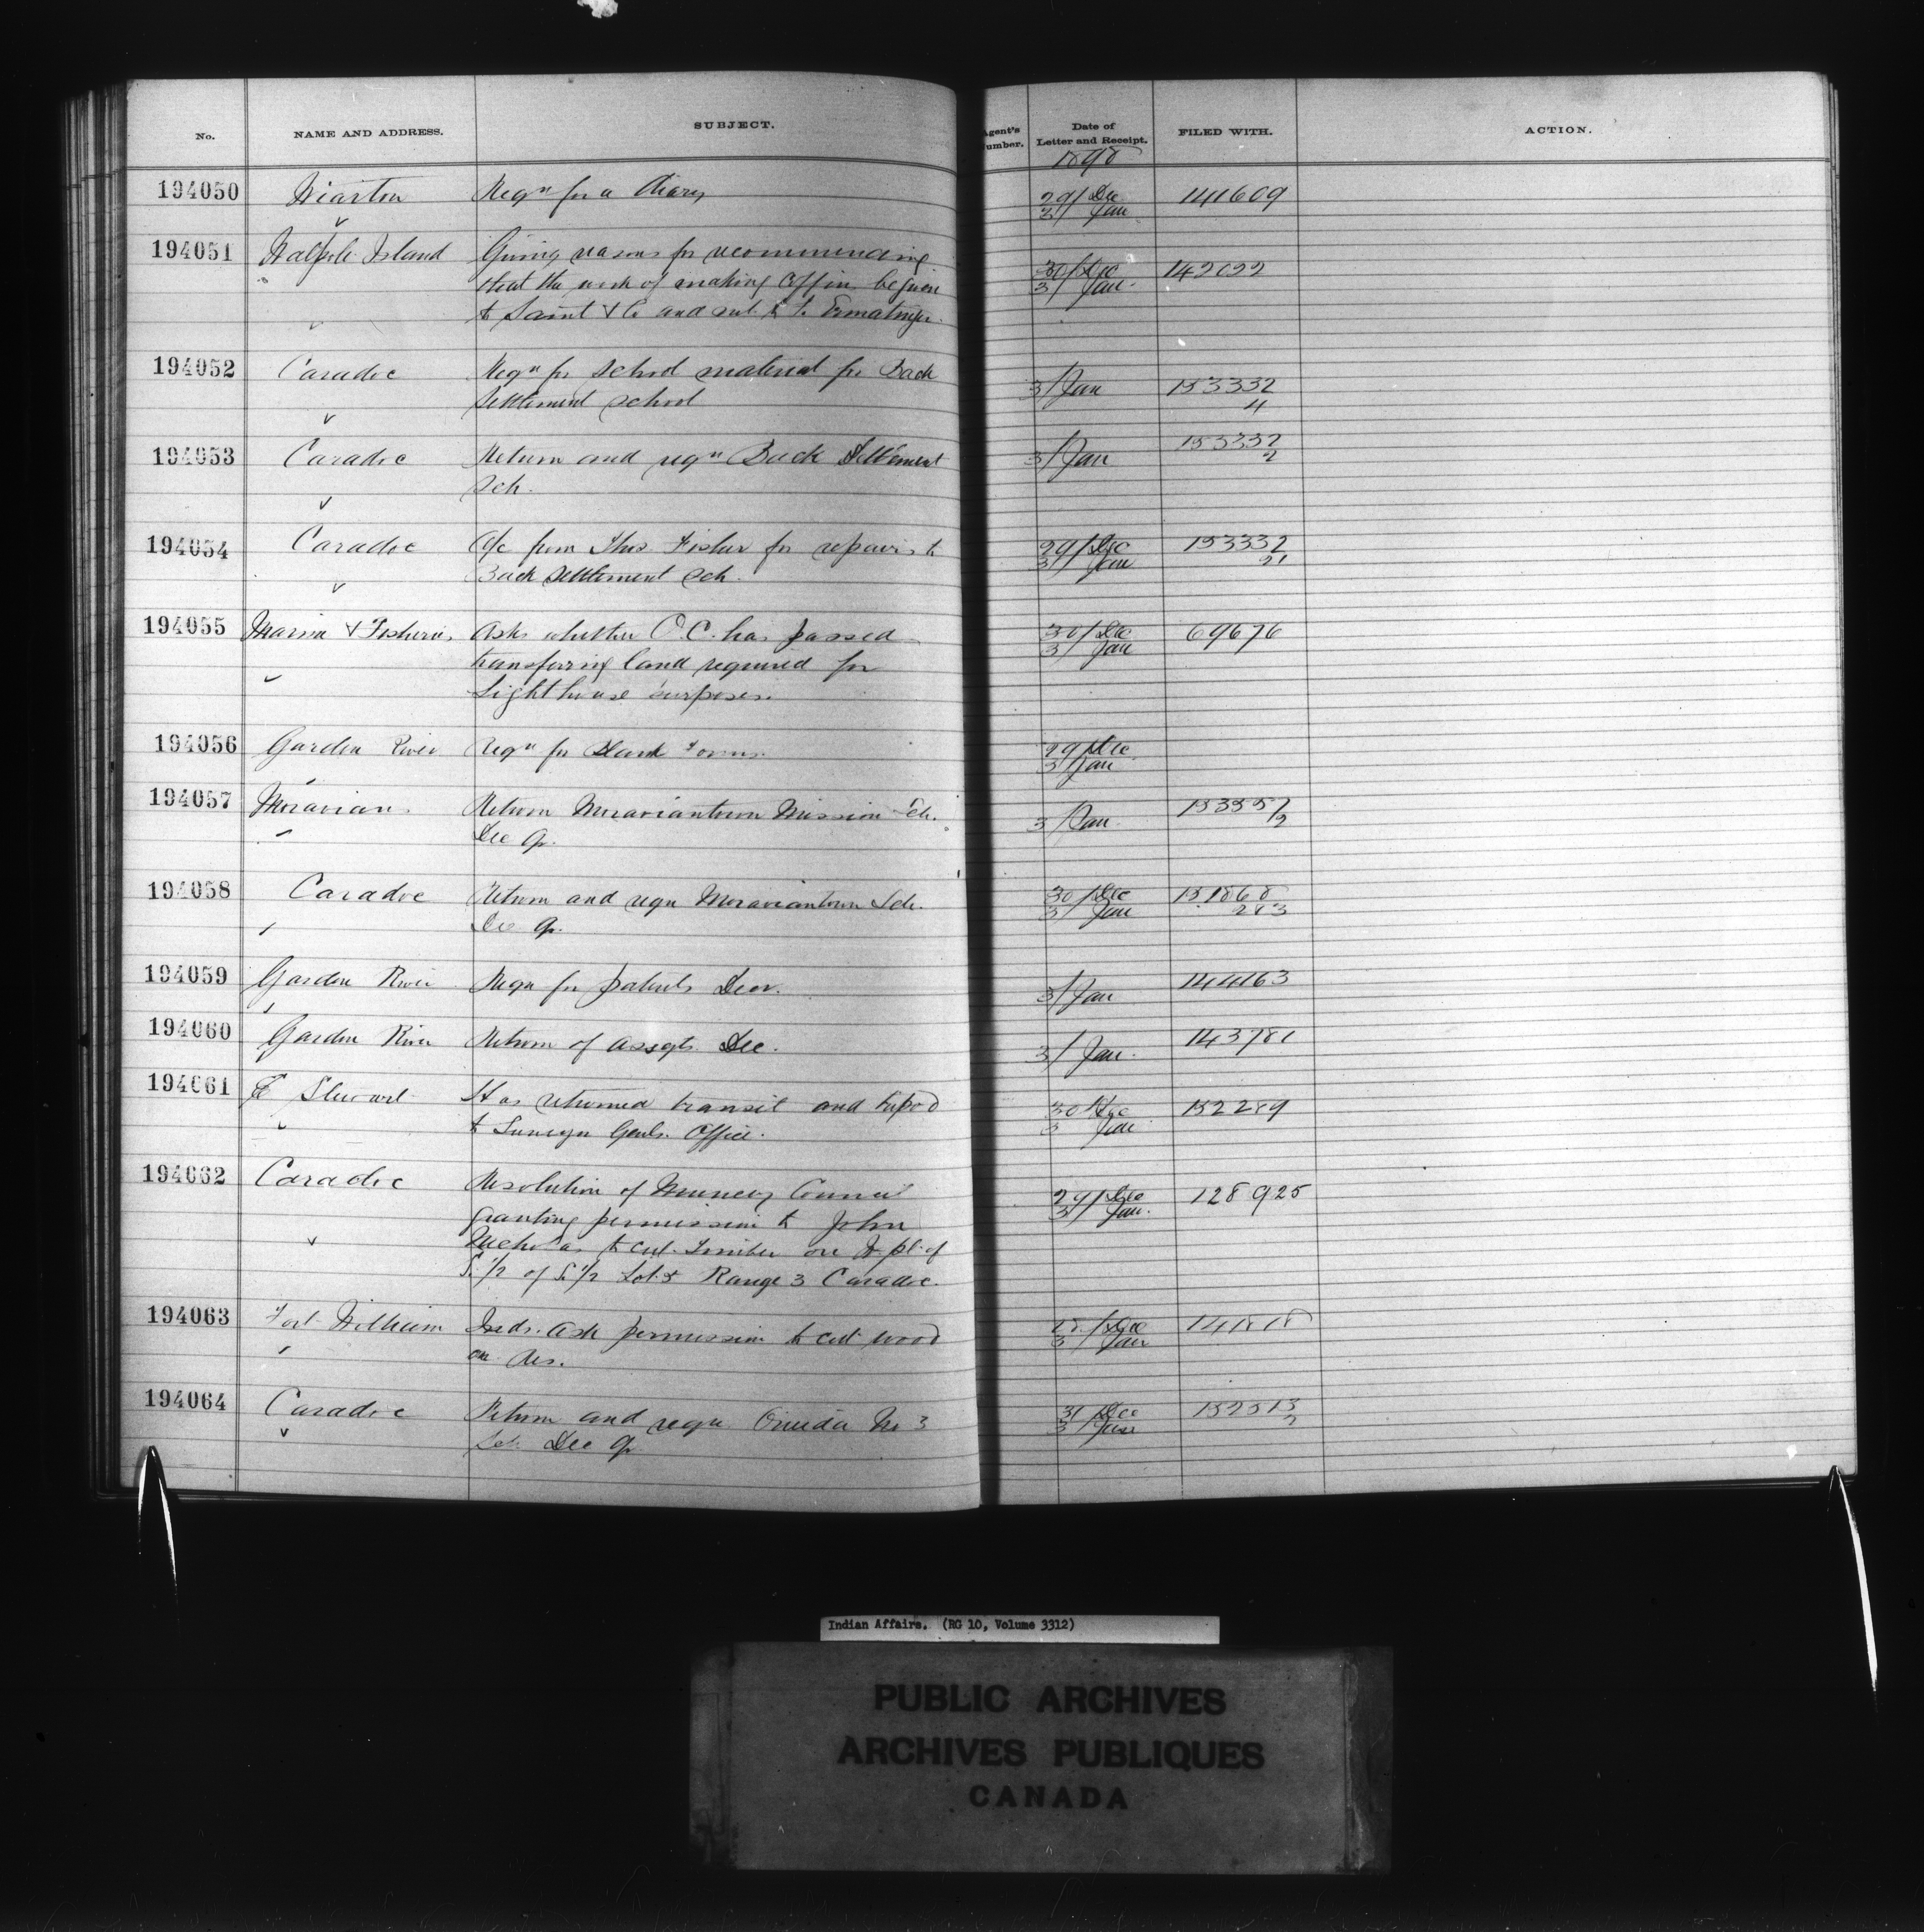 No. NAME AND ADDRESS. SUBJECT. Agent's Number. Date of Letter and Receipt. FILED WITH. ACTION.
1898
194050 Wiarton Reqn for a Diary 29/ Dec 141609
3/ Jan
194051 Walpole Island Giving reasons for recommending 30/ Dec 142022
that the work of making Coffins be given 3/ Jan
to Saint & Co and not to to Ermatinger.
194052 Caradoc Reqn for School material for Back 3/ Jan 153332
Settlement School 4
194053 Caradoc Return and reqn Back Settlement 3/ Jan 153332
Sch. 2
194054 Caradoc A/c from Thos Fisher for repairs to 29/ Dec 153332
Back Settlement Sch. 3/ Jan 21
194055 Marine & Fisheries Asks whether O.C. has passed 30/ Dec 69676
transferring land required for 3/ Jan
Lighthouse purposes.
194056 Garden River Reqn for Blank Forms. 29/ Dec
3/ Jan
194057 Moravian Return Moraviantown Mission Sch. 3/ Jan 153357
Dec qr. 2
194058 Caradoc Return and reqn Moraviantown Sch. 30/ Dec 151868
Dec qr. 3/ Jan 2&3
194059 Garden River Reqn for patents Decr. 3/ Jan 144163
194060 Garden River Return of Assgts. Dec. 3/ Jan 143781
194061 E Stewart Has returned transit and tripod 30 Dec 152289
to Surveyr Genls. Office. 3 Jan
194062 Caradoc Resolution of Muncey Council 29/ Dec 128925
granting permission to John 3/ Jan.
Nicholas to cut timber on W. pt. of
S. 1/2 of S. 1/2 Lot Range 3 Caradoc.
194063 Fort William Inds. ask permission to cut wood / Dec 141818
on Res. 3/ Jan
194064 Caradoc Return and reqn Oneida No 3 31 Dec 152513
Sch. Dec qr 3 Jan 2
Indian Affairs. (RG 10, Volume 3312)
PUBLIC ARCHIVES
ARCHIVES PUBLIQUES
CANADA